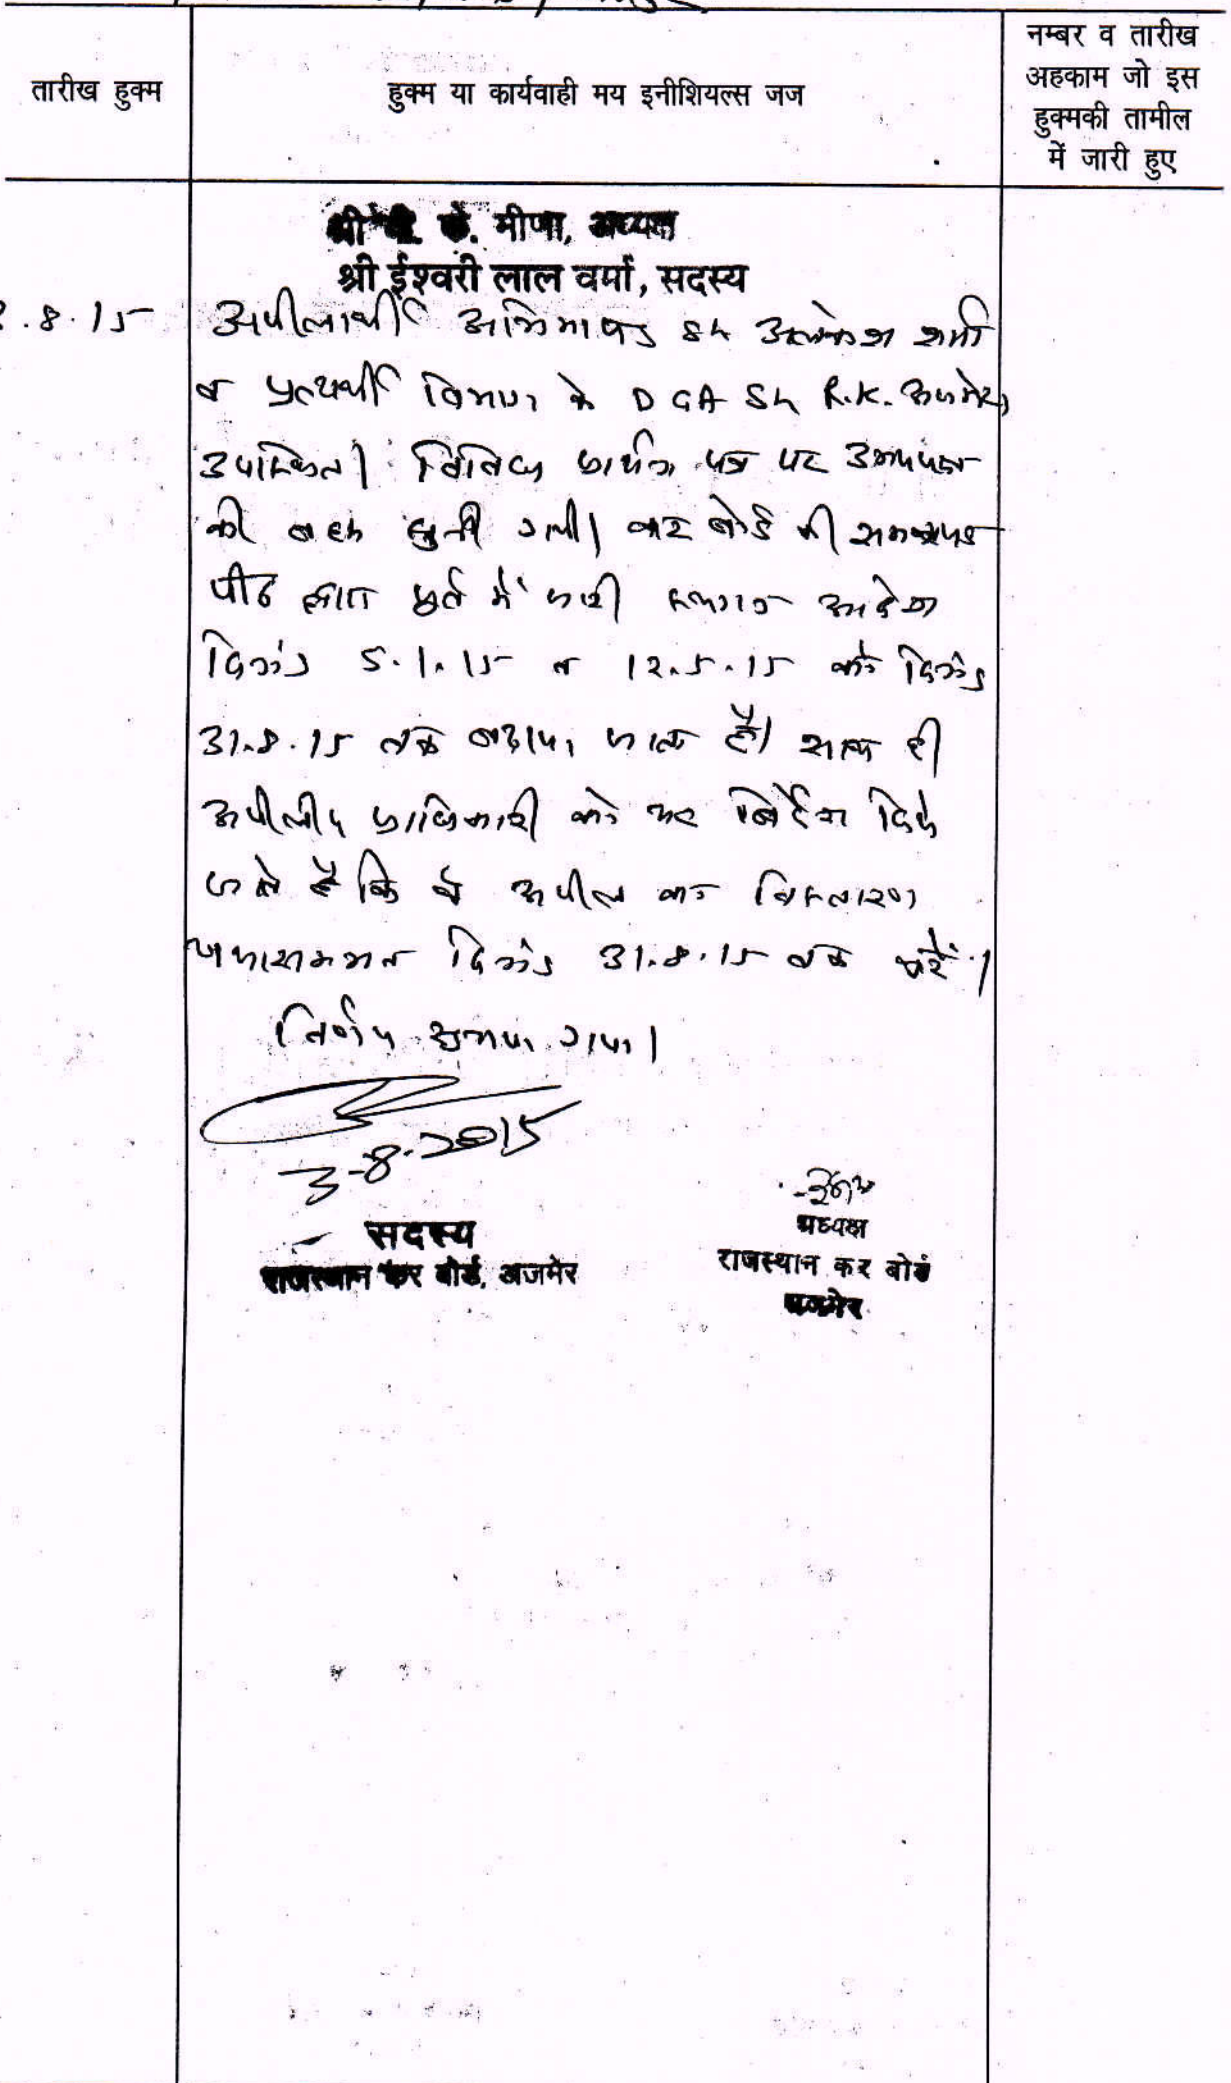 तारीख हुक्म
हुक्म या कार्यवाही मय इनीशियल्स जज
नम्बर व तारीख
अहकाम जो इस
हुक्मकी तामील
में जारी हुए
श्री के. मीणा, अध्यक्ष
श्री ईश्वरी लाल वर्मा, सदस्य
.8.15
अपीलार्थी अभिभाषक Sh शर्मा
व प्रत्यर्थी विभाग के DGA Sh R.K. अजमेरा
उपस्थित। विविध प्रार्थना पत्र पर उभयपक्ष
की बहस सुनी गयी। कर बोर्ड की समन्वयक
पीठ द्वारा पूर्व में जारी स्थगन आदेश
दिनांक 5.1.15 व 12.5.15 को दिनांक
31.8.15 तक बढ़ाया जाता है। साथ ही
अपीलीय प्राधिकारी को यह निर्देश दिये
जाते है कि वे अपील का निस्तारण
यथासम्भव दिनांक 31.8.15 तक करें।
निर्णय सुनाया गया।
3-8-2015
सदस्य
राजस्थान कर बोर्ड, अजमेर
अध्यक्ष
राजस्थान कर बोर्ड
अजमेर